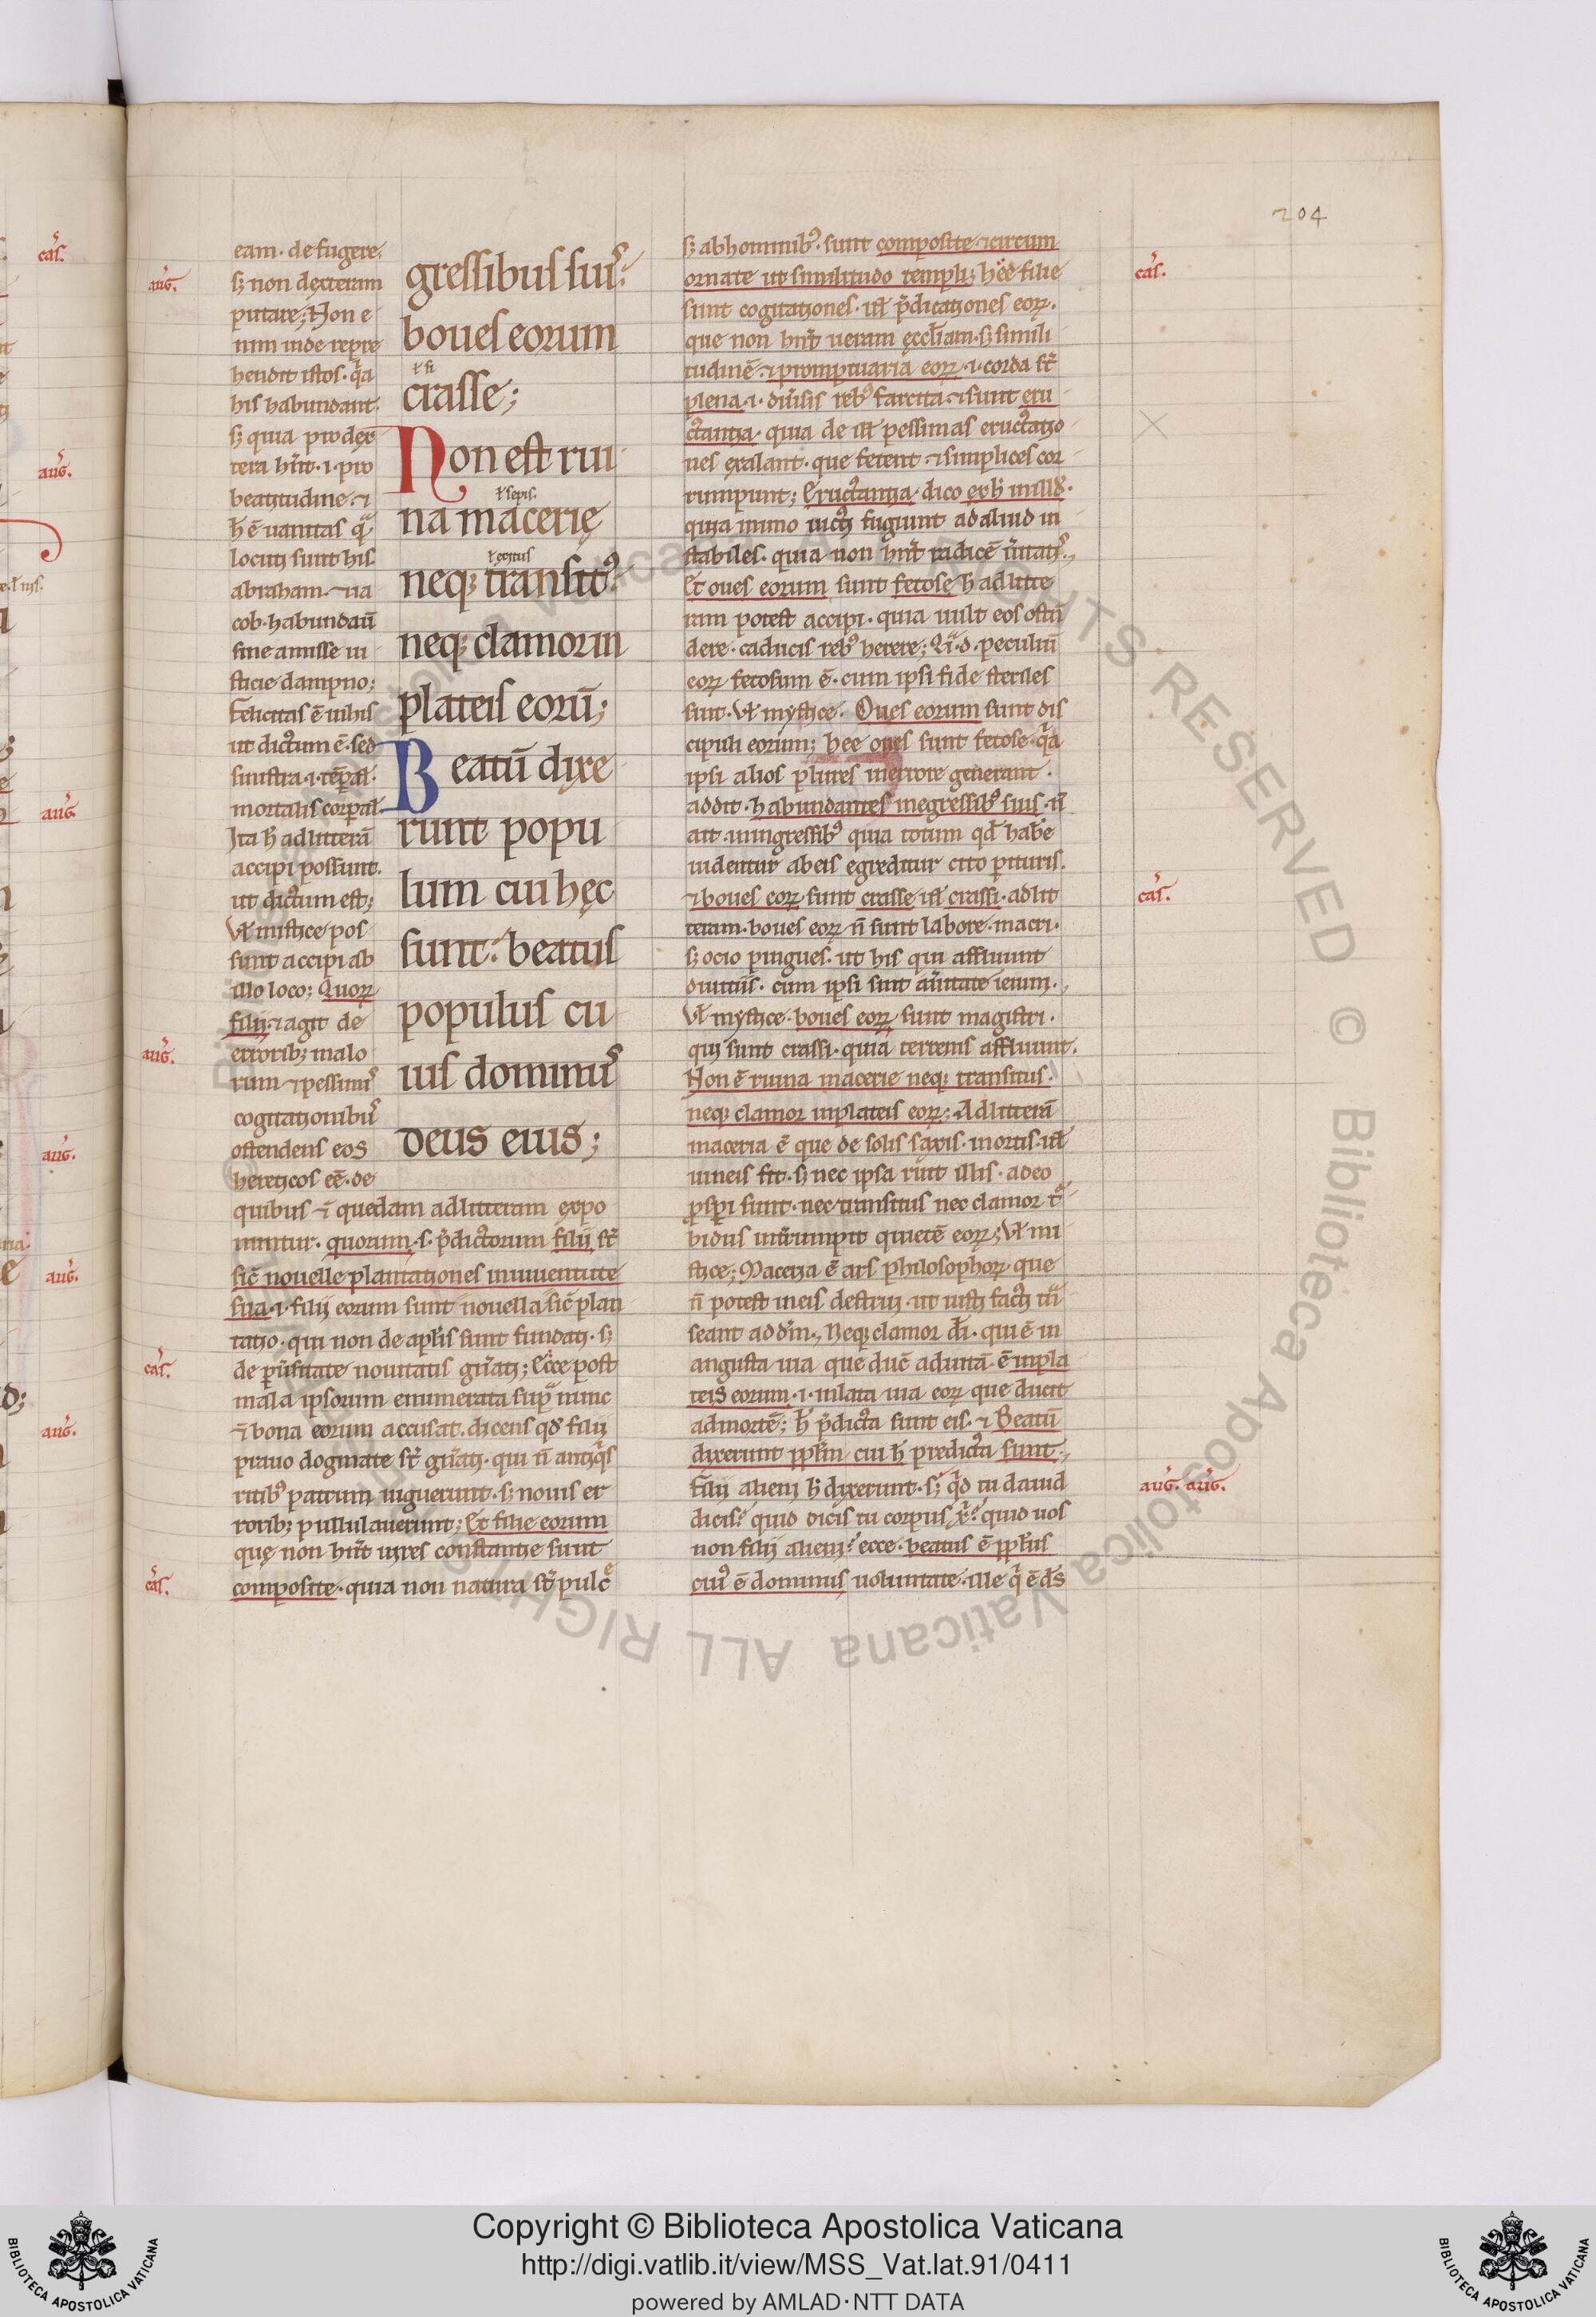 204
eam. de fugere.
sꝫ non dexteram
putare; Non e
nim inde repre
hendit istos. qͣa
his habundant.
sꝫ quia pro dex
tera hn̄t .i. pro
beatitudine. ⁊
h̄ ē uanitas qͣ
locuti sunt his
abraham. ⁊ ia
cob. habundaū
sine amisse iu
sticie dampno;
felicitas ē nobis
ut dictum ē. sed
sinistra .i. tēpal̄.
mortalis corpal̄.
Ita h̄ ad litterā
accipi possunt.
ut dictum est;
Vl̄ mistice pos
sunt accipi ab
illo loco; Quoꝝ
filij. ⁊ agit de
erroribꝫ malo
rum ⁊ pessimis
cogitationibus
ostendens eos
hereticos eē. de
quibus ⁊ quedam ad litteram expo
nuntur. quorum .s. p̄dictorum filij st̄
sic̄ nouelle plantationes in iuuentute
sua .i. filij eorum sunt nouella sic̄ plan
tatio. qui non de apl̄is sunt fundati. sꝫ
de puersitate nouitatis gn̄ati; Ecce post
mala ipsorum enumerata supͣ nunc
⁊ bona eorum accusat. dicens qd̄ filij
prauo dogmate st̄ gn̄ati. qui n̄ antiqͥs
ritibꝰ patrum uiguerunt. sꝫ nouis er
roribꝫ pullulauerunt; Et filie eorum
quę non hn̄t uires constantie sunt
composite. quia non natura st̄ pulcͤ
gressibus suis:
boues eorum
ł si
crasse;
Non est rui
ł sepis.
na macerię
ł exitus
neqꝫ transitꝰ
neqꝫ clamor in
plateis eorū;
Beatū dixe
runt popu
lum cui hęc
sunt: beatus
populus cu
ius dominus
deus eius;
sꝫ ab hominibꝰ. sunt composite ⁊ circum
ornate ut similitudo templi; hee filie
sunt cogitationes. ul̄ p̄dicationes eoꝝ.
que non hn̄t ueram eccl̄iam. sꝫ simili
tudinē. ⁊ promptuaria eoꝝ .i. corda st̄
plena .i. diuersis rebꝰ farcita. ⁊ sunt eru
ctantia. quia de illis pessimas eructatio
nes exalant. que fetent ⁊ simplices cor
rumpunt; Eructantia dico ex h̄ in illud.
quia immo uicti fugiunt ad aliud in
stabiles. quia non hn̄t radicē ueritatis.
Et oues eorum sunt fetose h̄ ad litte
ram potest accipi. quia uult eos ostn̄
dere. caducis rebꝰ herere; Qͣ.d. peculiū
eoꝝ fetosum ē. cum ipsi fide steriles
sint. Vl̄ mystice. Oues eorum sunt dis
cipuli eorum; hee oues sunt fetose. qͣa
ipsi alios plures in errore generant.
addit. habundantes in egressibꝰ suis. ñ
ait. in ingressibꝰ quia totum qd̄ habe
uidentur ab eis egreditur cito pituris.
⁊ boues eoꝝ sunt crasse ul̄ crassi. ad lit
teram. boues eoꝝ n̄ sunt labore macri.
sꝫ ocio pingues. ut his qui affluunt
diuitiis. cum ipsi sint a ueritate ieiuni.
Vl̄ mystice. boues eoꝝ sunt magistri.
qui sunt crassi. quia terrenis affluunt.
Non ē ruina macerie neqꝫ transitus.
neqꝫ clamor in plateis eoꝝ; Ad litterā
maceria ē que de solis saxis. in ortis. ul̄
uineis fit. sꝫ nec ipsa ruit illis. adeo
pspi sunt. nec transitus nec clamor tͬ
bidus interrumpit quietē eoꝝ; Vl̄ mi
stice; Maceria ē ars philosophoꝝ que
n̄ potest in eis destrui. ut iusti facti trͣ
seant ad dn̄m. Neqꝫ clamor dei. qui ē in
angusta uia que duc̄ ad uitā. ē in pla
teis eorum .i. in lata uia eoꝝ que ducit
ad mortē; h̄ p̄dicta sunt eis. ⁊ Beatū
dixerunt ppl̄m cui h̄ predicta sunt.
filij alieni h̄ dixerunt. sꝫ qͥd tu dauid
dicis? quid dicis tu corpus xp̄i? quid uos
non filij alieni? ecce. beatus ē ppl̄us
cuiꝰ ē dominus uoluntate. ille qͥ ē ds̄
cas.
aug.
aug.
aug.
aug.
aug.
aug.
cas.
aug.
cas.
cas.
cas.
aug. aug.
© Biblioteca Apostolica Vaticana ALL RIGHTS RESERVED
Copyright © Biblioteca Apostolica Vaticana
http://digi.vatlib.it/view/MSS_Vat.lat.91/0411
powered by AMLAD·NTT DATA
BIBLIOTECA APOSTOLICA VATICANA
BIBLIOTECA APOSTOLICA VATICANA